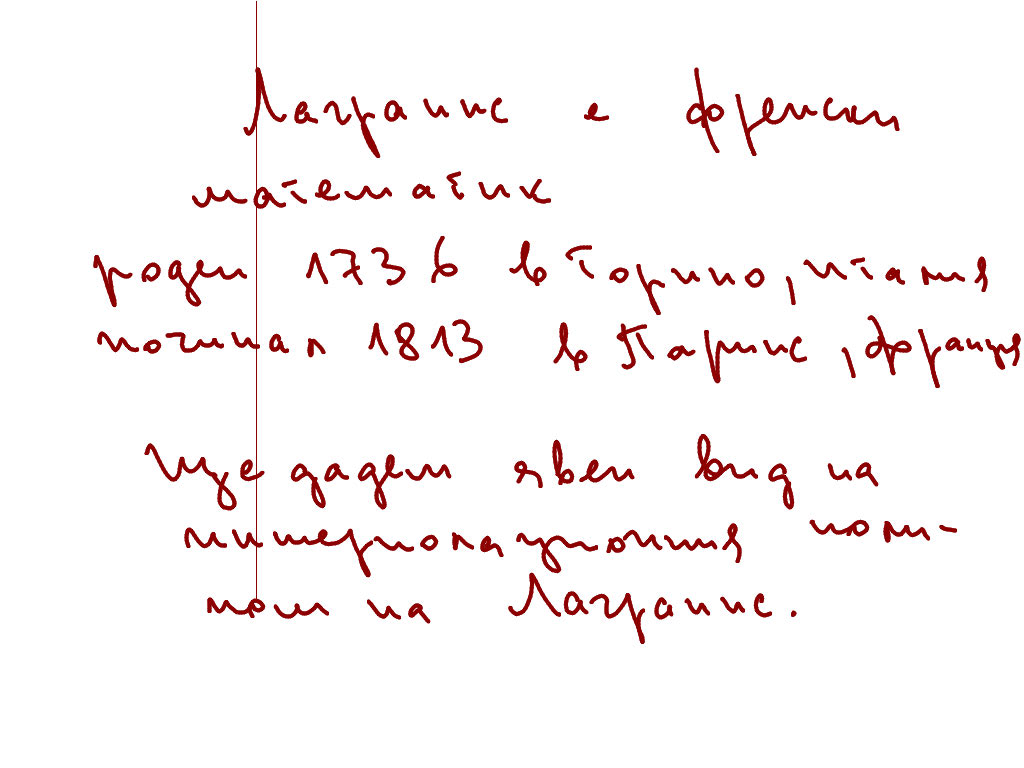 Лагранж е френски
математик
роден 1736 в Торино, Италия
починал 1813 в Париж, Франция
Ще дадем явен вид на
интерполационния поли-
ном на Лагранж.